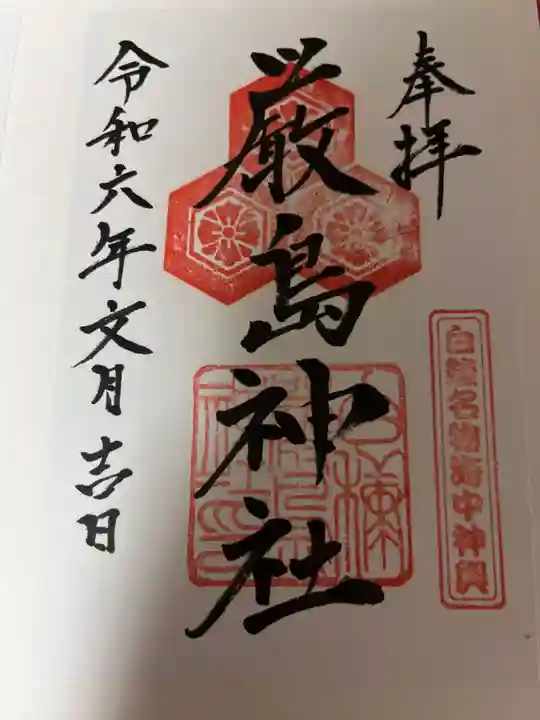 奉拝
白糠名物海中神輿
厳島神社
令和六年文月吉日